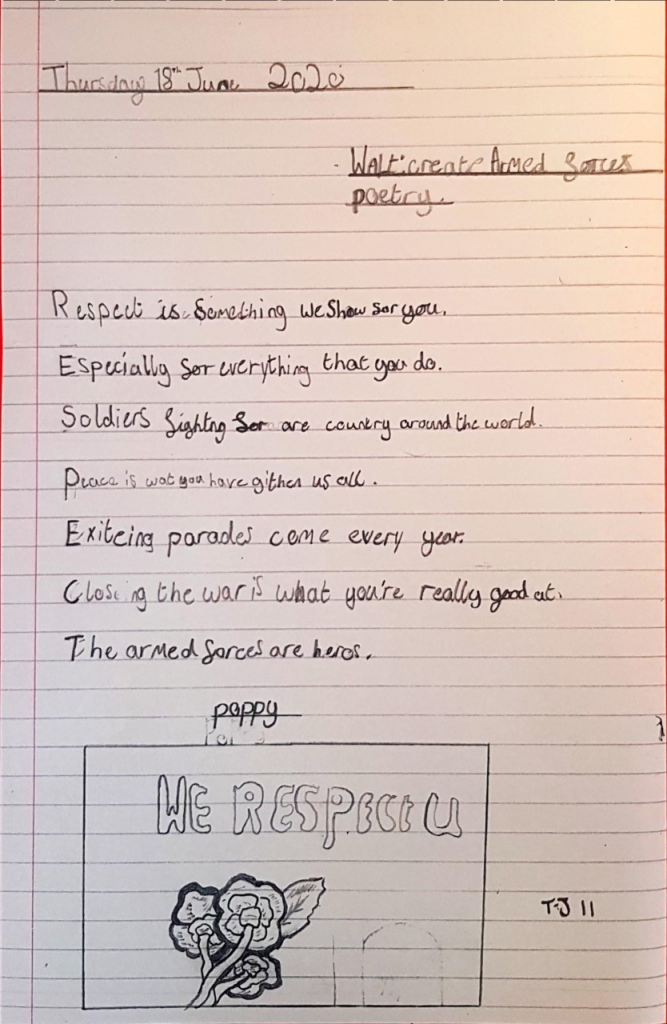 Thursday 18th June 2020
- WALT: create Armed forces
poetry.
Respect is something we show for you.
Especially for everything that you do.
Soldiers fightng for are country around the world.
Peace is wot you have githen us all.
Exiteing parades come every year.
Closing the war is what you're really good at.
The armed forces are heros.
poppy
WE RESPECT U
T.J 11